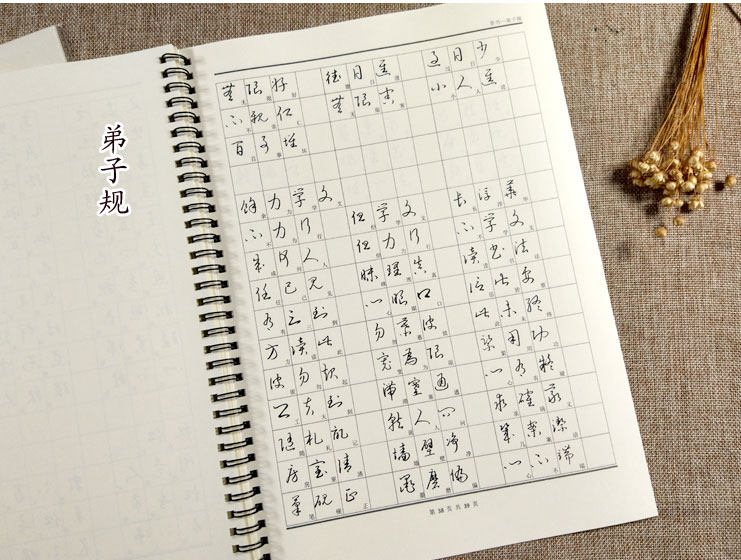 草书—弟子规
弟子规
无限好 德日进 过日少
不亲仁 无限害 小人进
百事坏
余力学文
不力行 但学文 长浮华
成何人 但力行 不学文
任己见 昧理真 读书法
有三到 心眼口 信皆要
方读此 勿慕彼 此未终
彼勿起 宽为限 紧用功
工夫到 滞塞通 心有疑
随札记 就人问 求确义
房室清 墙壁净 几案洁
笔砚正 墨磨偏 心不端
第 38 页 共 39 页